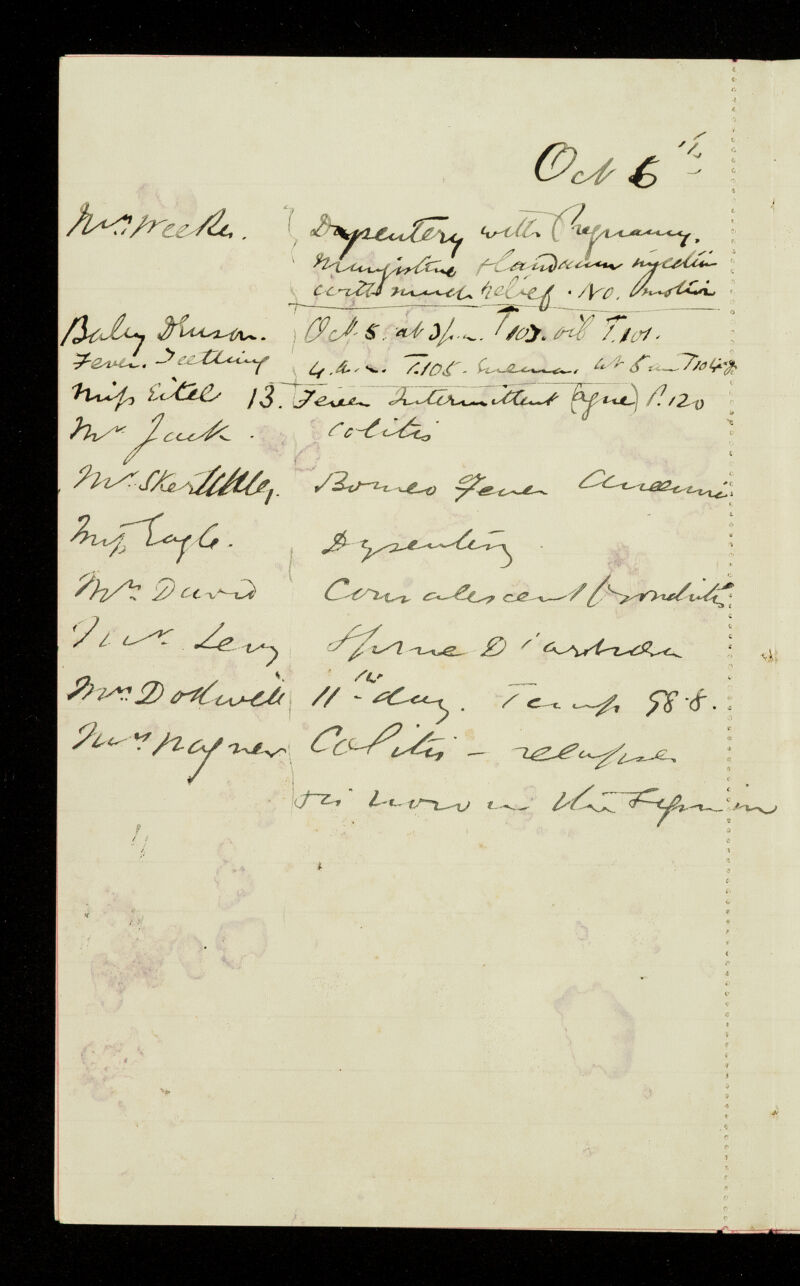 Oct 6th
Mrs Weekes. Dysentery with Pregnancy.
Mangosteen & Laudanum injection
with much relief. No. motion
Baby Dluson. Oct 5. at 3 p.m. T 103. oil T. 101.
Fever. Teething 4 a.m. T. 105. Enema. at 5 am T 104
Miss Eitel 13. Fever Intermittent (ague) P. 120
Mr Jack. Colitis
Mr Skertchley. Borneo Fever Anaemia
Miss Eagle. Dysentery
Mrs David Convalescent Bronchitis
Mr Levy Sprue Diarrhoea
Mrs Dodwell 11th day. Temp 98.8.
Mrs Wagner Colitis - relapse
is now in the